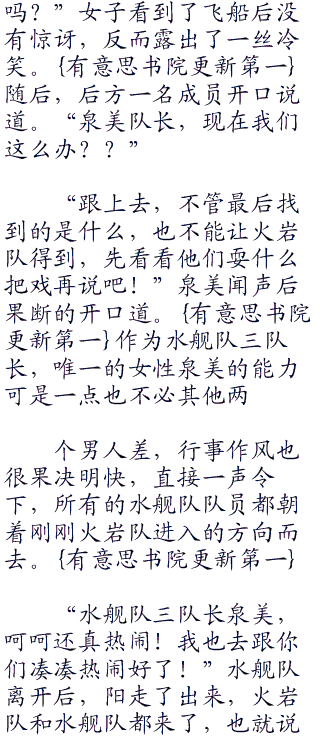 吗？”女子看到了飞船后没
有惊讶，反而露出了一丝冷
笑。{有意思书院更新第一}
随后，后方一名成员开口说
道。“泉美队长，现在我们
这么办？？”
“跟上去，不管最后找
到的是什么，也不能让火岩
队得到，先看看他们耍什么
把戏再说吧！”泉美闻声后
果断的开口道。{有意思书院
更新第一}作为水舰队三队
长，唯一的女性泉美的能力
可是一点也不必其他两
个男人差，行事作风也
很果决明快，直接一声令
下，所有的水舰队队员都朝
着刚刚火岩队进入的方向而
去。{有意思书院更新第一}
“水舰队三队长泉美，
呵呵还真热闹！我也去跟你
们凑凑热闹好了！”水舰队
离开后，阳走了出来，火岩
队和水舰队都来了，也就说